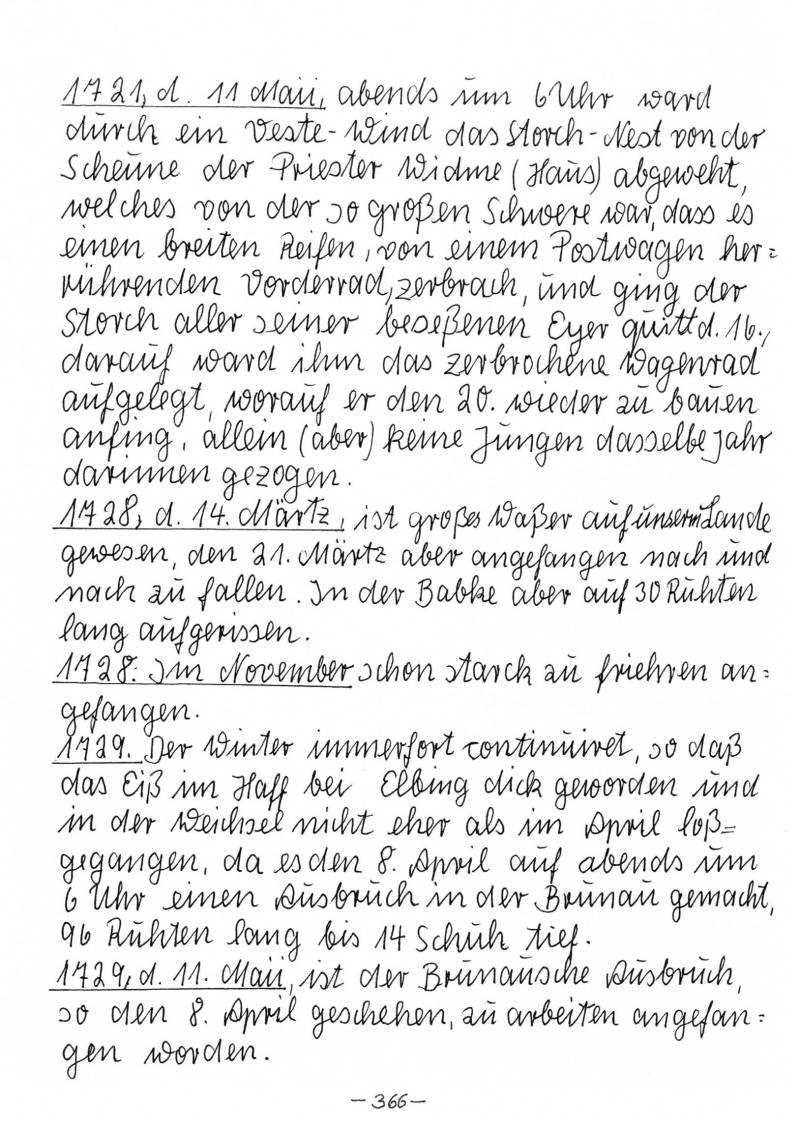 1721, d. 11 Maii, abends um 6 Uhr ward
durch ein Veste-Wind das Storch-Nest von der
Scheune der Priester Widme (Haus) abgeweht,
welches von der so großen Schwere war, dass es
einen breiten Reifen, von einem Postwagen her=
rührenden Vorderrad, zerbrach, und ging der
Storch aller seiner beseßenen Eyer quitt d. 16.,
darauf ward ihm das zerbrochene Wagenrad
aufgelegt, worauf er den 20. wieder zu bauen
anfing, allein (aber) keine Jungen dasselbe Jahr
darinnen gezogen.
1728, d. 14. Märtz, ist großes Waßer auf unserm Lande
gewesen, den 21. Märtz aber angefangen nach und
nach zu fallen. In der Babke aber auf 30 Ruhten
lang aufgerissen.
1728. Im November schon starck zu friehren an=
gefangen.
1729. Der Winter immerfort continuiret, so daß
das Eiß im Haff bei Elbing dick geworden und
in der Weichsel nicht eher als im April loß=
gegangen, da es den 8. April auf abends um
6 Uhr einen Ausbruch in der Brunau gemacht,
96 Ruhten lang bis 14 Schuh tief.
1729, d. 11. Maii, ist der Brunausche Ausbruch,
so den 8. April geschehen, zu arbeiten angefan=
gen worden.
- 366 -